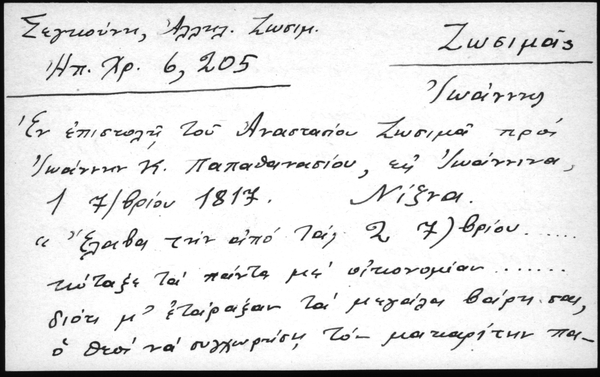 Σεγκούνη, Ἀλληλ. Ζωσιμ.
Ζωσιμᾶς
Ἠπ. Χρ. 6, 205
Ἰωάννης
Ἐν ἐπιστολῇ τοῦ Ἀναστασίου Ζωσιμᾶ πρὸς
Ἰωάννην Κ. Παπαθανασίου, εἰς Ἰωάννινα,
1 7/βρίου 1817. Νίζνα.
" Ἔλαβα τὴν ἀπό τὰς 2 7)βρίου.....
κύταξε τὰ πάντα μὲ οἰκονομίαν.......
διότι μ' ἐτάραξαν τὰ μεγάλα βάρη σας,
ὁ θεὸς νὰ συγχωρήσῃ τὸν μακαρίτην πα-